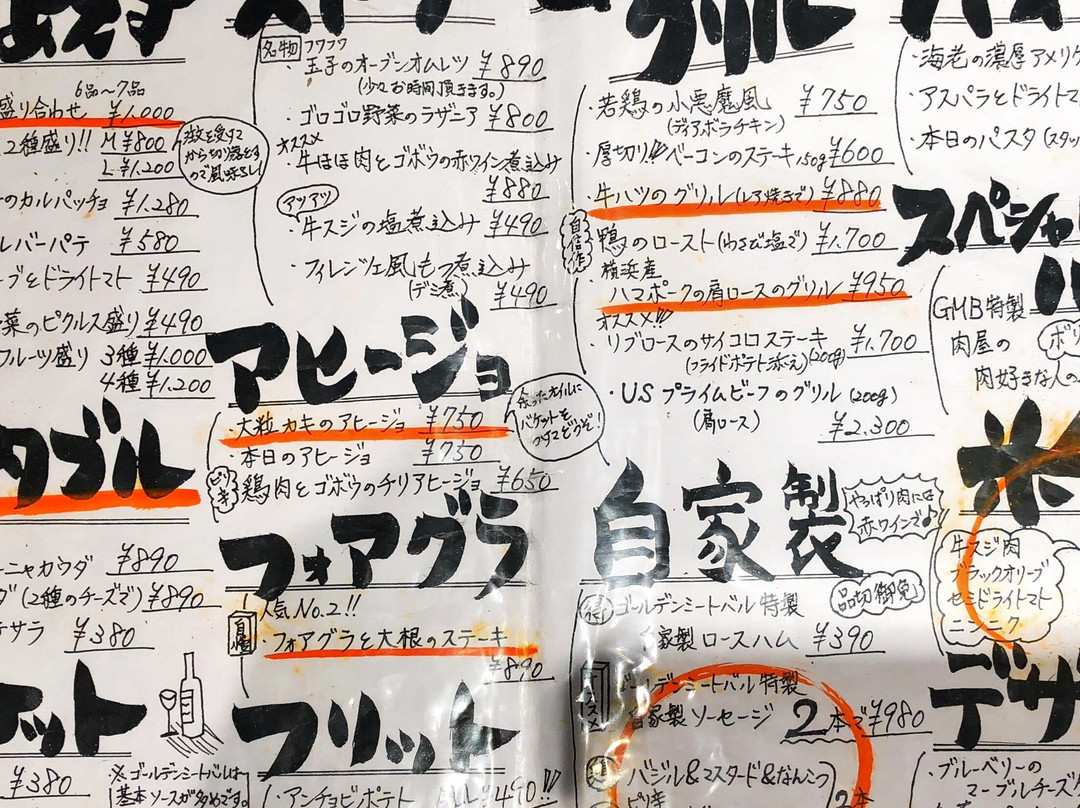 6品〜7品
盛り合わせ ¥1.000
2種盛り!! M ¥800
L ¥1.200
のカルパッチョ ¥1.280
レバーパテ ¥580
ブとドライトマト ¥490
菜のピクルス盛り ¥490
フルーツ盛り 3種 ¥1.000
4種 ¥1.200
タブル
ーニャカウダ ¥890
ダ(2種のチーズで) ¥890
サラ ¥380
ェット
¥380
※ゴールデンミートバルは
基本ソースがタめです。
名物 フワフワ
・玉子のオーブンオムレツ ¥890
(少々お時間頂きます。)
・ゴロゴロ野菜のラザニア ¥800
オススメ
・牛ほほ肉とゴボウの赤ワイン煮込み
¥880
アツアツ
・牛スジの塩煮込み ¥490
・フィレンツェ風もつ煮込み
(デミ煮) ¥490
アヒージョ
・大粒カキのアヒージョ ¥750
・本日のアヒージョ ¥750
ピリ辛 鶏肉とゴボウのチリアヒージョ ¥650
余ったオイルに
バケットを
つけてどうぞ!
フォアグラ
人気No.2!!
自慢
フォアグラと大根のステーキ
¥890
フリット
・アンチョビポテト ALL ¥490!!
グリル
・若鶏の小悪魔風 ¥750
(ディアボラチキン)
・厚切り!!ベーコンのステーキ150g ¥600
・牛ハツのグリル(レア焼きで) ¥880
自信作 鴨のロースト(わさび塩で) ¥1.700
横浜産
ハマポークの肩ロースのグリル ¥950
オススメ!!!
・リブロースのサイコロステーキ ¥1.700
(フライドポテト添え)(200g)
・USプライムビーフのグリル (200g)
(肩ロース) ¥2.300
自家製
やっぱり肉には
赤ワインで♪
品切御免
ゴールデンミートバル特製
自家製ロースハム ¥390
ゴールデンミートバル特製
自家製ソーセージ 2本で¥980
バジル&マスタード&なんこつ
ピリ辛
2本
・海老の濃厚アメリケ
・アスパラとドライトマ
・本日のパスタ(スタッ
スペシャ
GMB特製
肉屋の
肉好きな人の
米
牛スジ肉
ブラックオリーブ
セミドライトマト
ニンニク
デザ
・ブルーベリーの
マーブルチーズケ